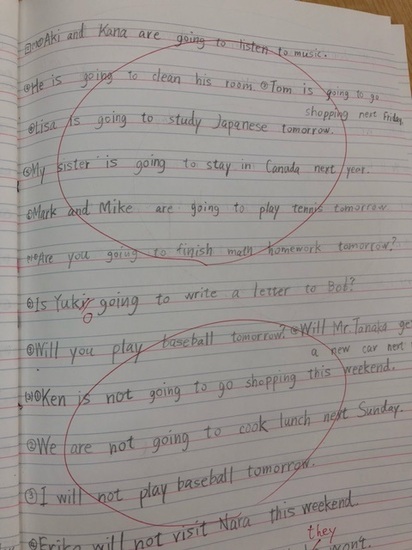 ②(1)① Aki and Kana are going to listen to music.
② He is going to clean his room ③ Tom is going to go
shopping next Friday.
④ Lisa is going to study Japanese tomorrow.
⑤ My sister is going to stay in Canada next year.
⑥ Mark and Mike are going to play tennis tomorrow
① Are you going to finish math homework tomorrow?
② Is Yuki going to write a letter to Bob?
③ Will you play baseball tomorrow? ④ Will Mr. Tanaka ge
a new car next
① Ken is not going to go shopping this weekend.
② We are not going to cook lunch next Sunday.
③ I will not play baseball tomorrow.
④ Erika will not visit Nara this weekend.
they
won't.